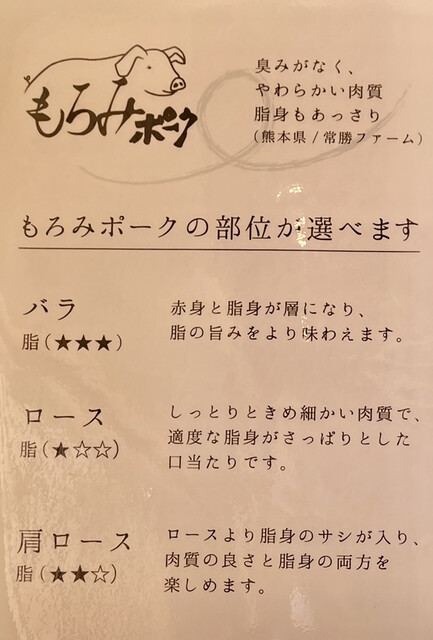 もろみポーク
臭みがなく、
やわらかい肉質
脂身もあっさり
(熊本県/常勝ファーム)
もろみポークの部位が選べます
バラ
脂(★★★)
赤身と脂身が層になり、
脂の旨みをより味わえます。
ロース
脂(★☆☆)
しっとりときめ細かい肉質で、
適度な脂身がさっぱりとした
口当たりです。
肩ロース
脂(★★☆)
ロースより脂身のサシが入り、
肉質の良さと脂身の両方を
楽しめます。